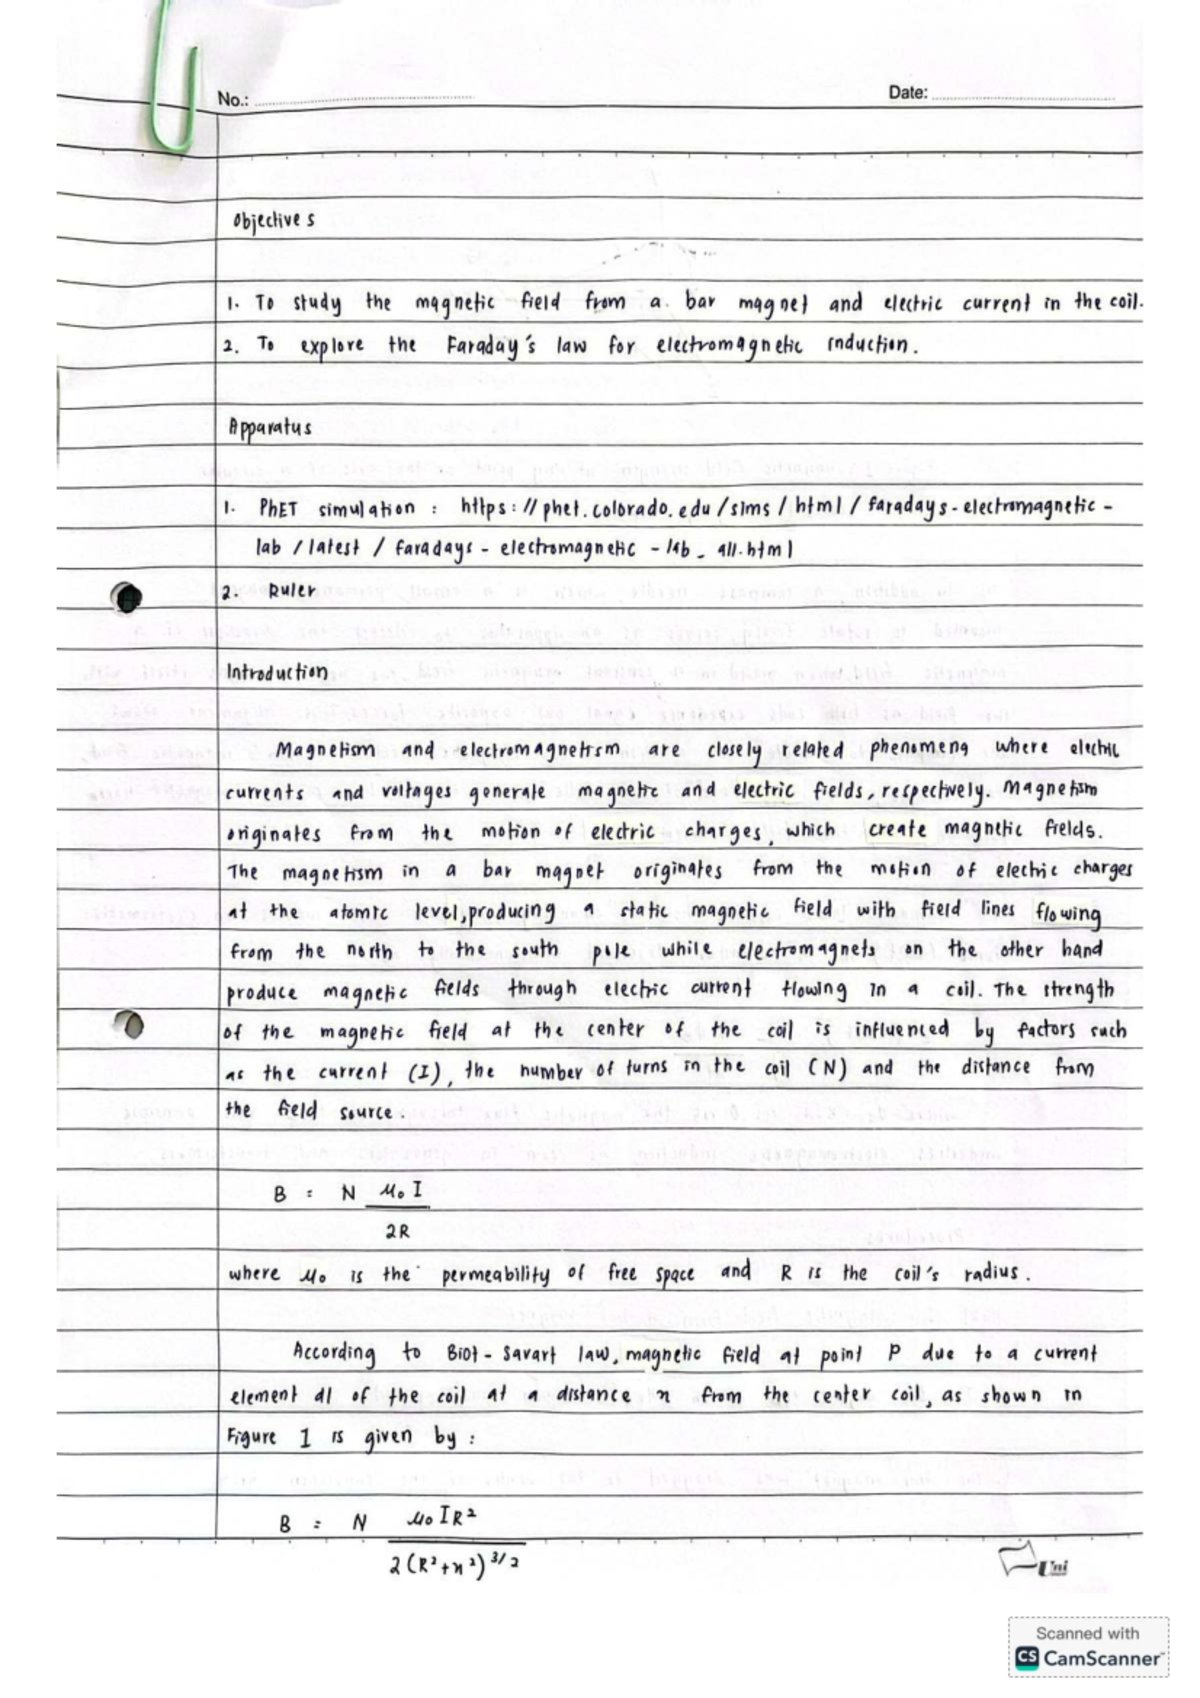 No.:
Date:
Objectives
1. To study the magnetic field from a bar magnet and electric current in the coil.
2. To explore the Faraday's law for electromagnetic induction.
Apparatus
1. PhET simulation : https://phet.colorado.edu/sims/html/faradays-electromagnetic-
lab/latest/faradays-electromagnetic-lab_all.html
2. Ruler
Introduction
Magnetism and electromagnetism are closely related phenomena where electric
currents and voltages generate magnetic and electric fields, respectively. Magnetism
originates from the motion of electric charges, which create magnetic fields.
The magnetism in a bar magnet originates from the motion of electric charges
at the atomic level, producing a static magnetic field with field lines flowing
from the north to the south pole while electromagnets on the other hand
produce magnetic fields through electric current flowing in a coil. The strength
of the magnetic field at the center of the coil is influenced by factors such
as the current (I), the number of turns in the coil (N) and the distance from
the field source.
B = N μ₀ I
2R
where μ₀ is the permeability of free space and R is the coil's radius.
According to Biot-Savart law, magnetic field at point P due to a current
element dl of the coil at a distance x from the center coil, as shown in
Figure 1 is given by :
B = N μ₀ I R²
2 (R² + x²)^3/2
Uni
Scanned with
CS CamScanner